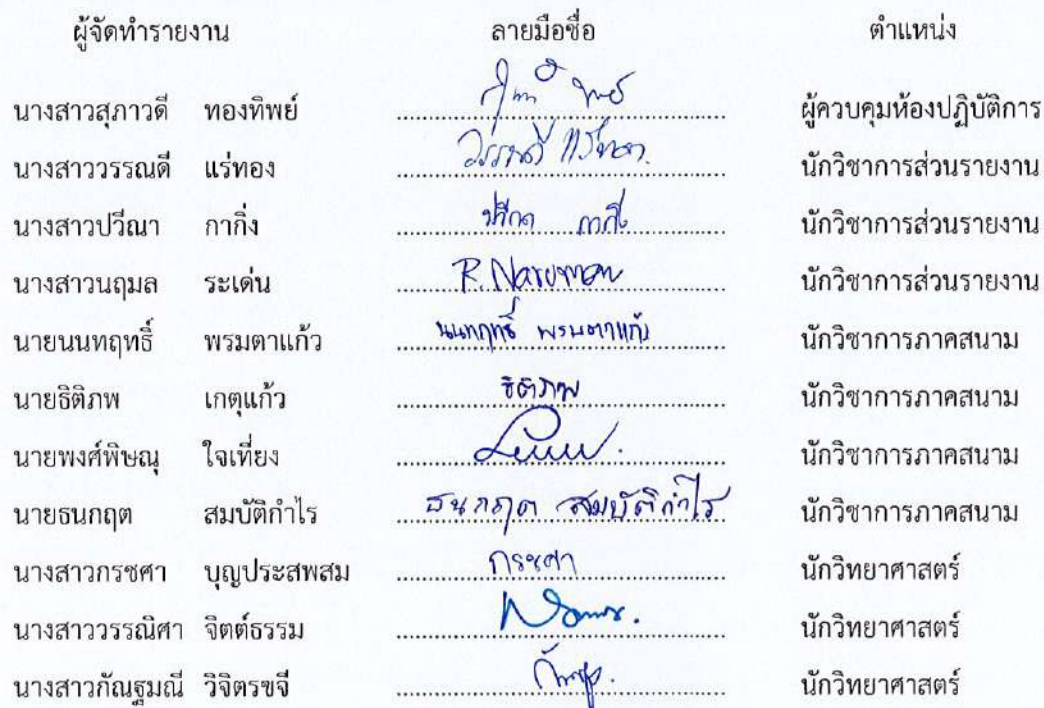 ผู้จัดทำรายงาน ลายมือชื่อ ตำแหน่ง
นางสาวสุภาวดี ทองทิพย์ ผู้ควบคุมห้องปฏิบัติการ
นางสาววรรณดี แร่ทอง วรรณดี แร่ทอง นักวิชาการส่วนรายงาน
นางสาวปวีณา กากิ่ง ปวีณา กากิ่ง นักวิชาการส่วนรายงาน
นางสาวนฤมล ระเด่น R. Narumon นักวิชาการส่วนรายงาน
นายนนทฤทธิ์ พรมตาแก้ว นนทฤทธิ์ พรมตาแก้ว นักวิชาการภาคสนาม
นายธิติภพ เกตุแก้ว ธิติภพ นักวิชาการภาคสนาม
นายพงศ์พิษณุ ใจเที่ยง นักวิชาการภาคสนาม
นายธนกฤต สมบัติกำไร ธนกฤต สมบัติกำไร นักวิชาการภาคสนาม
นางสาวกรชศา บุญประสพสม กรชศา นักวิทยาศาสตร์
นางสาววรรณิศา จิตต์ธรรม นักวิทยาศาสตร์
นางสาวกัณฐมณี วิจิตรขจี นักวิทยาศาสตร์